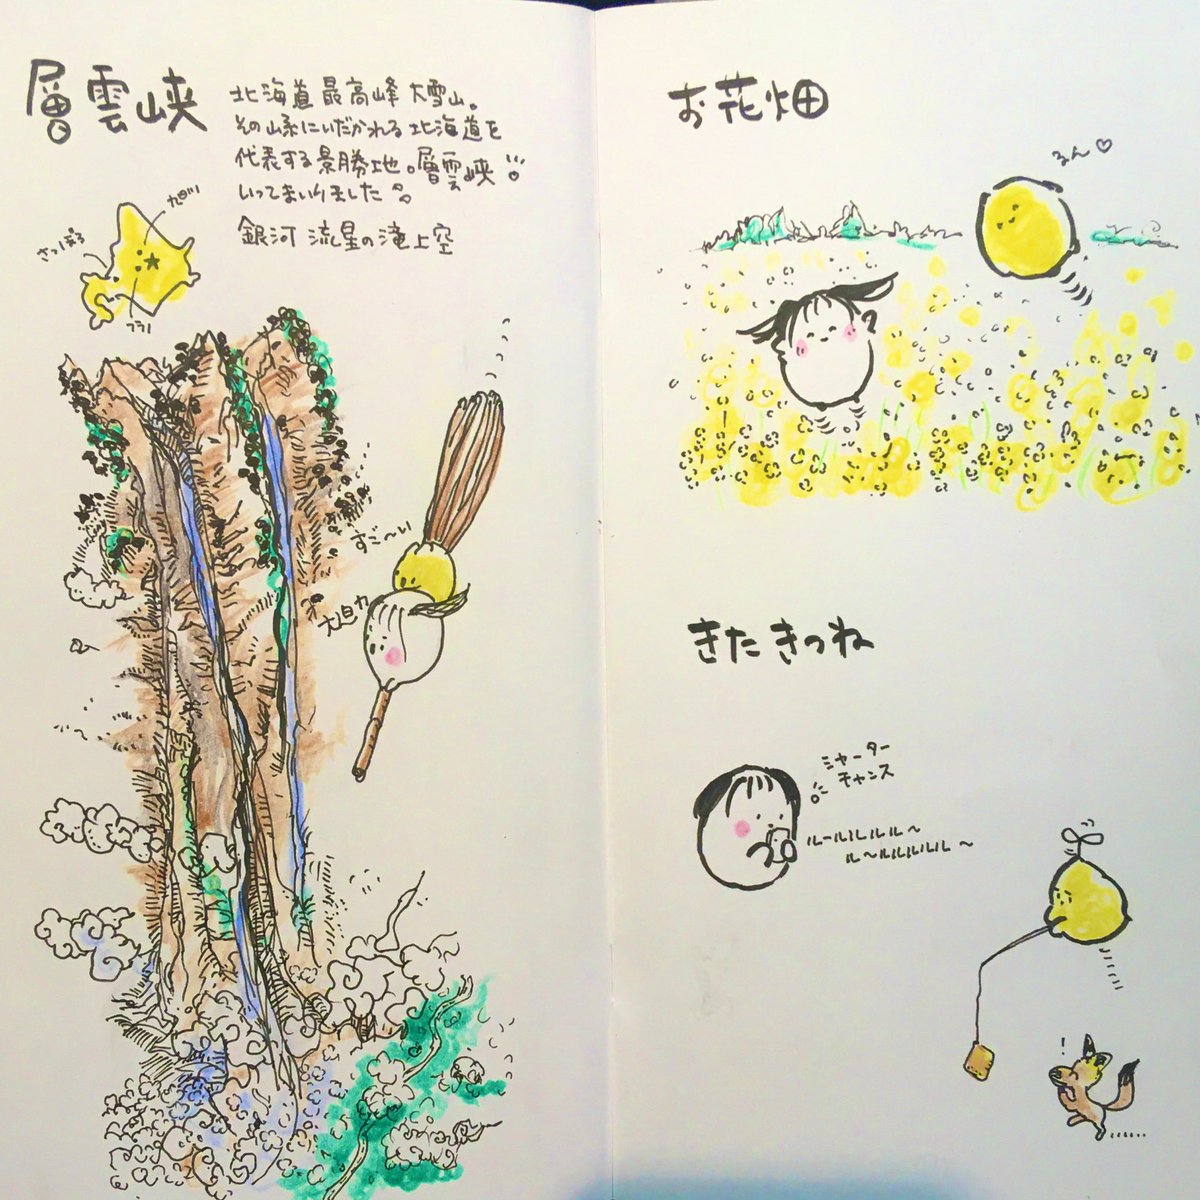 層雲峡
北海道最高峰 大雪山。
その山系にいだかれる北海道を
代表する景勝地。層雲峡
いってまいりました
銀河 流星の滝上空
さっぽろ
フラノ
すご〜い
大迫力
お花畑
るん♡
きたきつね
シャーター
チャンス
ルールルルル〜
ル〜ルルルルル〜
!